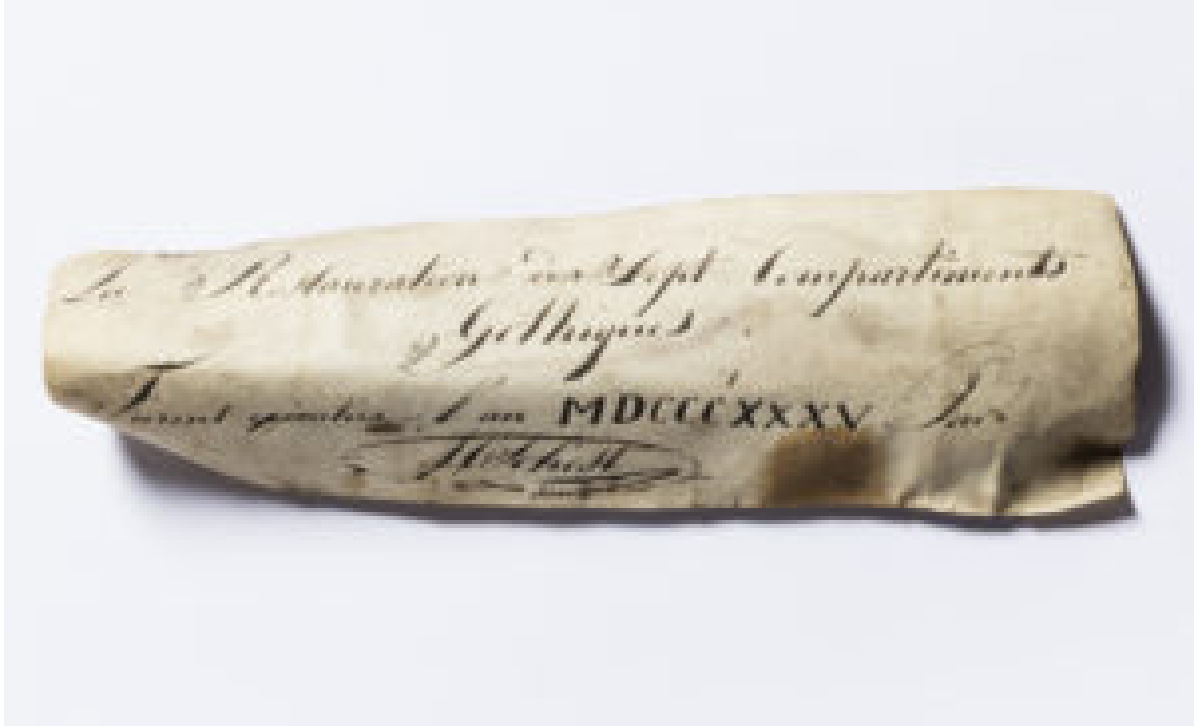 La Restauration des Sept Compartiments
Gothiques.
Furent l'an MDCCCXXXXV Par